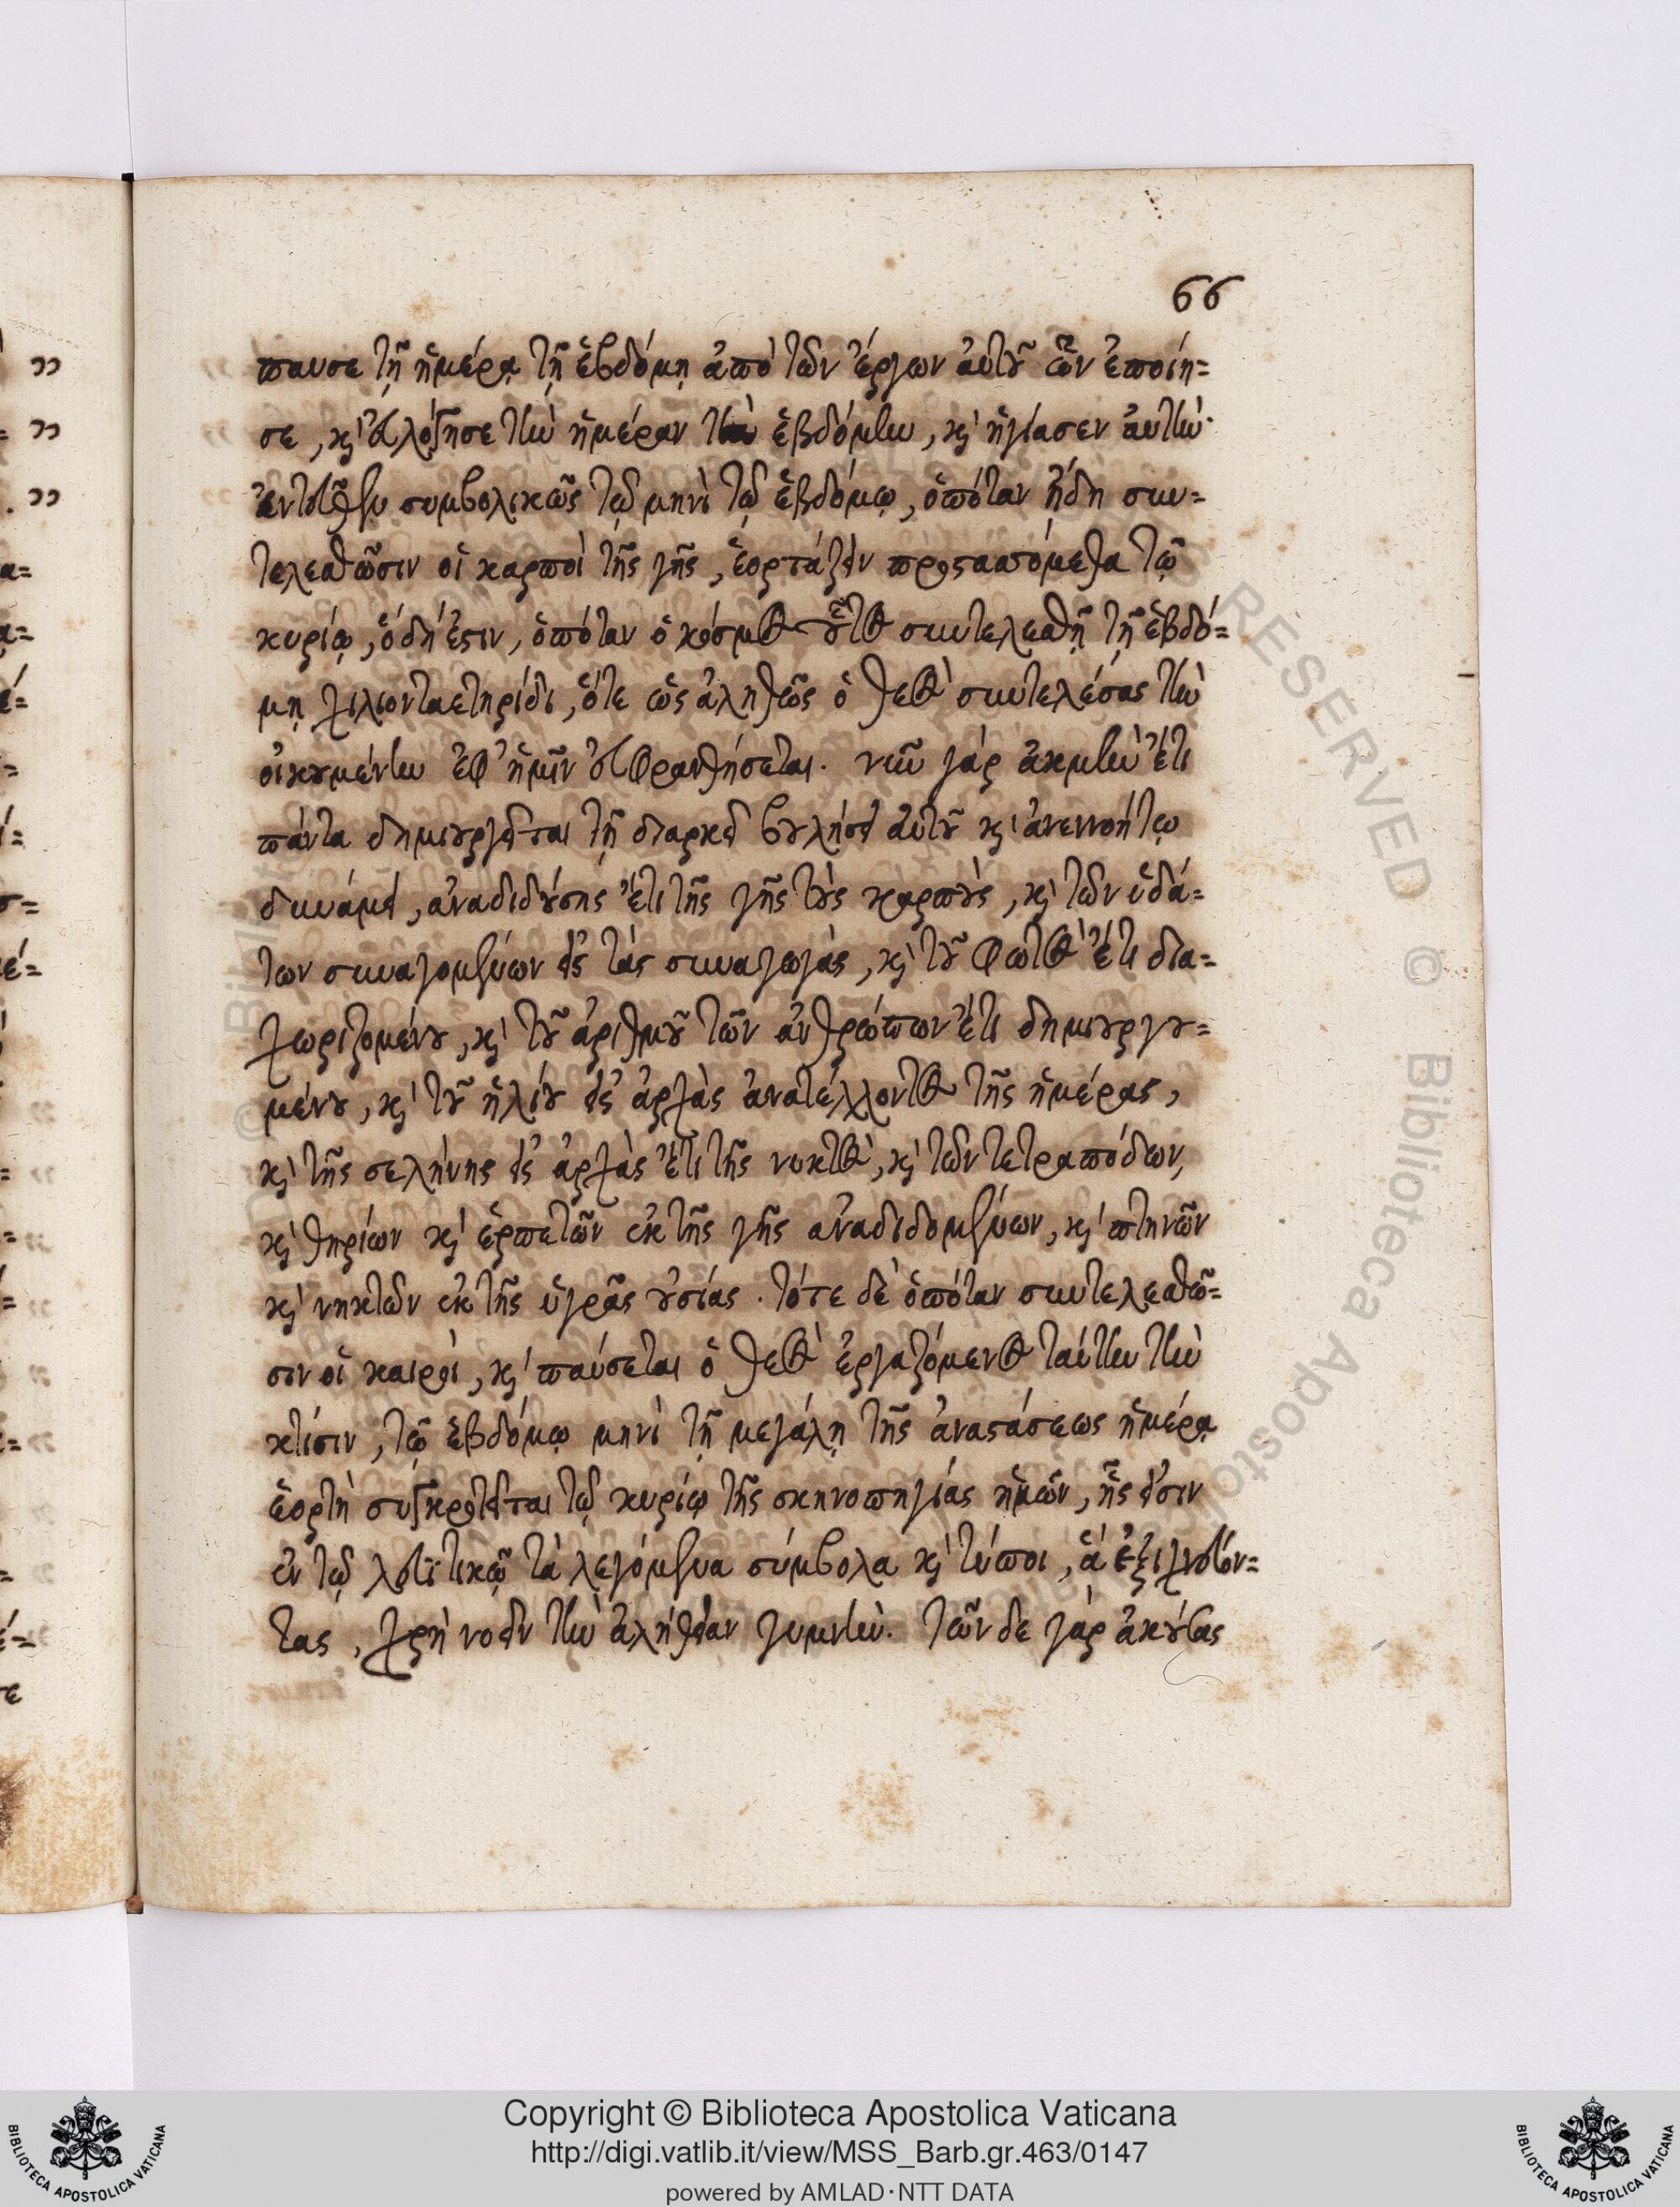 66
παυσε τῇ ἡμέρᾳ τῇ ἑβδόμῃ ἀπὸ τῶν ἔργων αὐτοῦ ὧν ἐποίη=
σε, κὶ εὐλόγησε τὴν ἡμέραν τὴν ἑβδόμην, κὶ ἡγίασεν αὐτὴν·
ἐντεῦθεν συμβολικῶς τῷ μηνὶ τῷ ἑβδόμῳ, ὁπόταν ἤδη συν=
τελεσθῶσιν οἱ καρποὶ τῆς γῆς, ἑορτάζειν προστασσόμεθα τῷ
κυρίῳ, ὃ δή ἐστιν, ὁπόταν ὁ κόσμος οὗτος συντελεσθῇ τῇ ἑβδό=
μῃ χιλιονταετηρίδι, ὅτε ὡς ἀληθῶς ὁ θεὸς συντελέσας τὴν
οἰκουμένην ἐφ' ἡμῖν εὐφρανθήσεται. νῦν γὰρ ἀκμὴν ἔτι
πάντα δημιουργεῖται τῇ διαρκεῖ βουλήσει αὐτοῦ κὶ ἀνεννοήτῳ
δυνάμει, ἀναδιδούσης ἔτι τῆς γῆς τοὺς καρποὺς, κὶ τῶν ὑδά=
των συναγομένων εἰς τὰς συναγωγὰς, κὶ τοῦ φωτὸς ἔτι δια=
χωριζομένου, κὶ τοῦ ἀριθμοῦ τῶν ἀνθρώπων ἔτι δημιουργου=
μένου, κὶ τοῦ ἡλίου εἰς ἀρχὰς ἀνατέλλοντος τῆς ἡμέρας,
κὶ τῆς σελήνης εἰς ἀρχὰς ἔτι τῆς νυκτὸς, κὶ τῶν τετραπόδων,
κὶ θηρίων κὶ ἑρπετῶν ἐκ τῆς γῆς ἀναδιδομένων, κὶ πτηνῶν
κὶ νηκτῶν ἐκ τῆς ὑγρᾶς οὐσίας. τότε δὲ ὁπόταν συντελεσθῶ=
σιν οἱ καιροὶ, κὶ παύσεται ὁ θεὸς ἐργαζόμενος ταύτην τὴν
κτίσιν, τῷ ἑβδόμῳ μηνὶ τῇ μεγάλῃ τῆς ἀναστάσεως ἡμέρᾳ
ἑορτὴ συγκροτεῖται τῷ κυρίῳ τῆς σκηνοπηγίας ἡμῶν, ἧς εἰσιν
ἐν τῷ λευϊτικῷ τὰ λεγόμενα σύμβολα κὶ τύποι, ἃ ἐξιχνεύον=
τας, χρὴ νοεῖν τὴν ἀλήθειαν γυμνὴν. τῶν δε γὰρ ἀκούσας
Copyright © Biblioteca Apostolica Vaticana
http://digi.vatlib.it/view/MSS_Barb.gr.463/0147
powered by AMLAD·NTT DATA